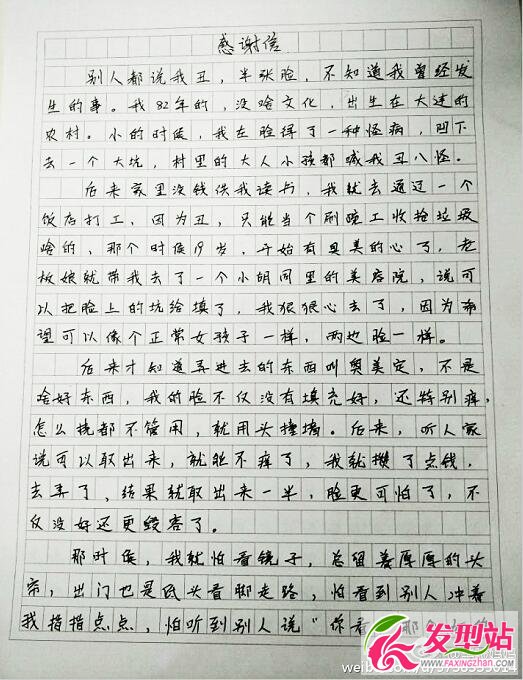 感谢信
别人都说我丑，半张脸，不知道我曾经发
生的事。我82年的，没啥文化，出生在大连的
农村。小的时候，我左脸得了一种怪病，凹下
去一个大坑，村里的大人小孩都喊我丑八怪。
后来家里没钱供我读书，我就去通过一个
饭店打工，因为丑，只能当个刷碗工收拾垃圾
啥的，那个时候19岁，开始有臭美的心了，老
板娘就带我去了一个小胡同里的美容院，说可
以把脸上的坑给填了，我狠狠心去了，因为希
望可以像个正常女孩子一样，两边脸一样。
后来才知道弄进去的东西叫奥美定，不是
啥好东西，我的脸不仅没有填充好，还特别痒，
怎么挠都不管用，就用头撞墙。后来，听人家
说可以取出来，就能不痒了，我就攒了点钱，
去弄了，结果就取出来一半，脸更可怕了，不
仅没好还更毁容了。
那时候，我就怕看镜子，总留着厚厚的头
帘，出门也是低头看脚走路，怕看到别人冲着
我指指点点，怕听到别人说“你看 那个
发型站
www.FAXINGZHAN.com